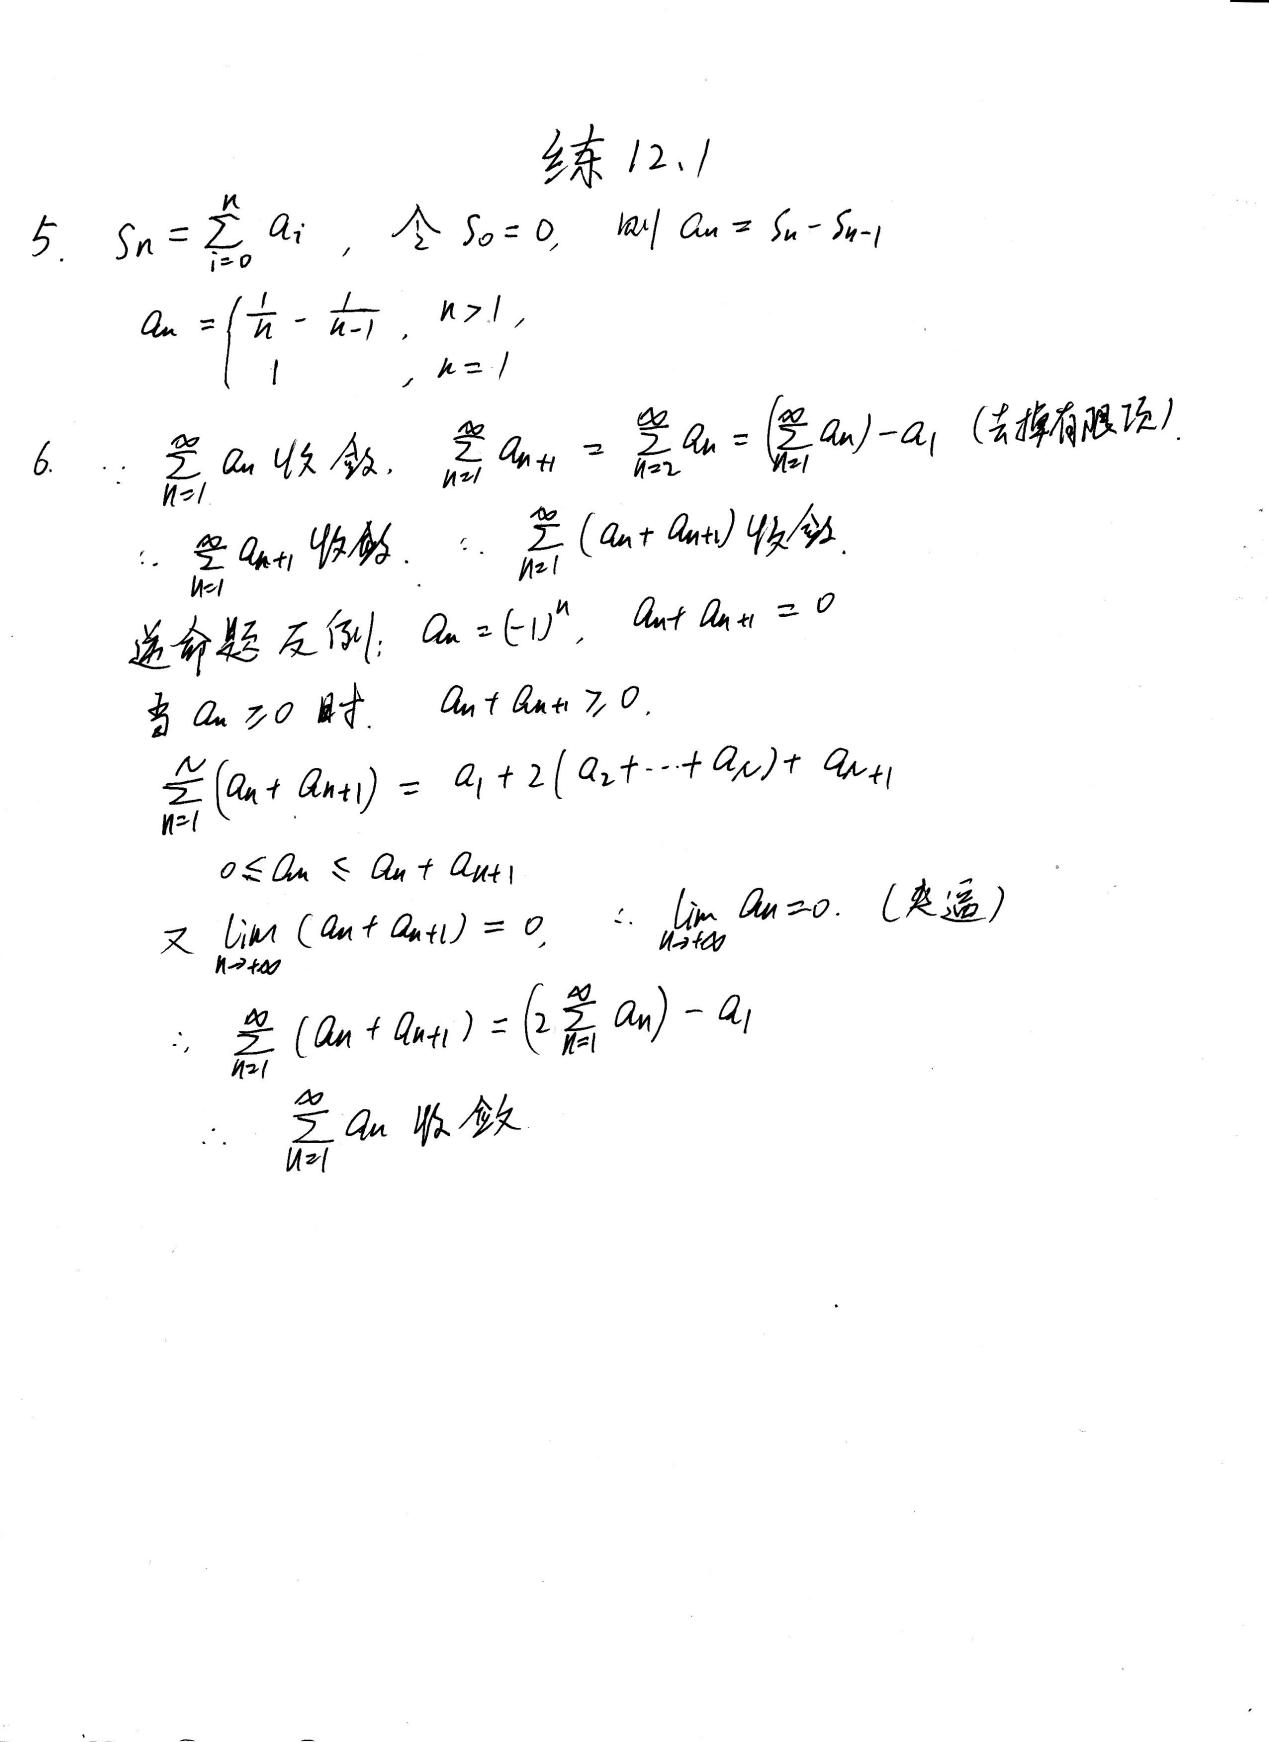 练12.1
5. Sn = ∑_{i=0}^{n} ai , 令 S0 = 0, 则 an = Sn - Sn-1
an = { 1/n - 1/(n-1) , n>1,
1 , n=1
6. ∵ ∑_{n=1}^{∞} an 收敛. ∑_{n=1}^{∞} an+1 = ∑_{n=2}^{∞} an = (∑_{n=1}^{∞} an) - a1 (去掉有限项).
∴ ∑_{n=1}^{∞} an+1 收敛. ∴ ∑_{n=1}^{∞} (an + an+1) 收敛.
逆命题反例: an = (-1)^n, an + an+1 = 0
当 an ≥ 0 时. an + an+1 ≥ 0.
∑_{n=1}^{N} (an + an+1) = a1 + 2(a2 + ··· + aN) + aN+1
0 ≤ an ≤ an + an+1
又 lim_{n→+∞} (an + an+1) = 0, ∴ lim_{n→+∞} an = 0. (夹逼)
∴ ∑_{n=1}^{∞} (an + an+1) = (2 ∑_{n=1}^{∞} an) - a1
∴ ∑_{n=1}^{∞} an 收敛